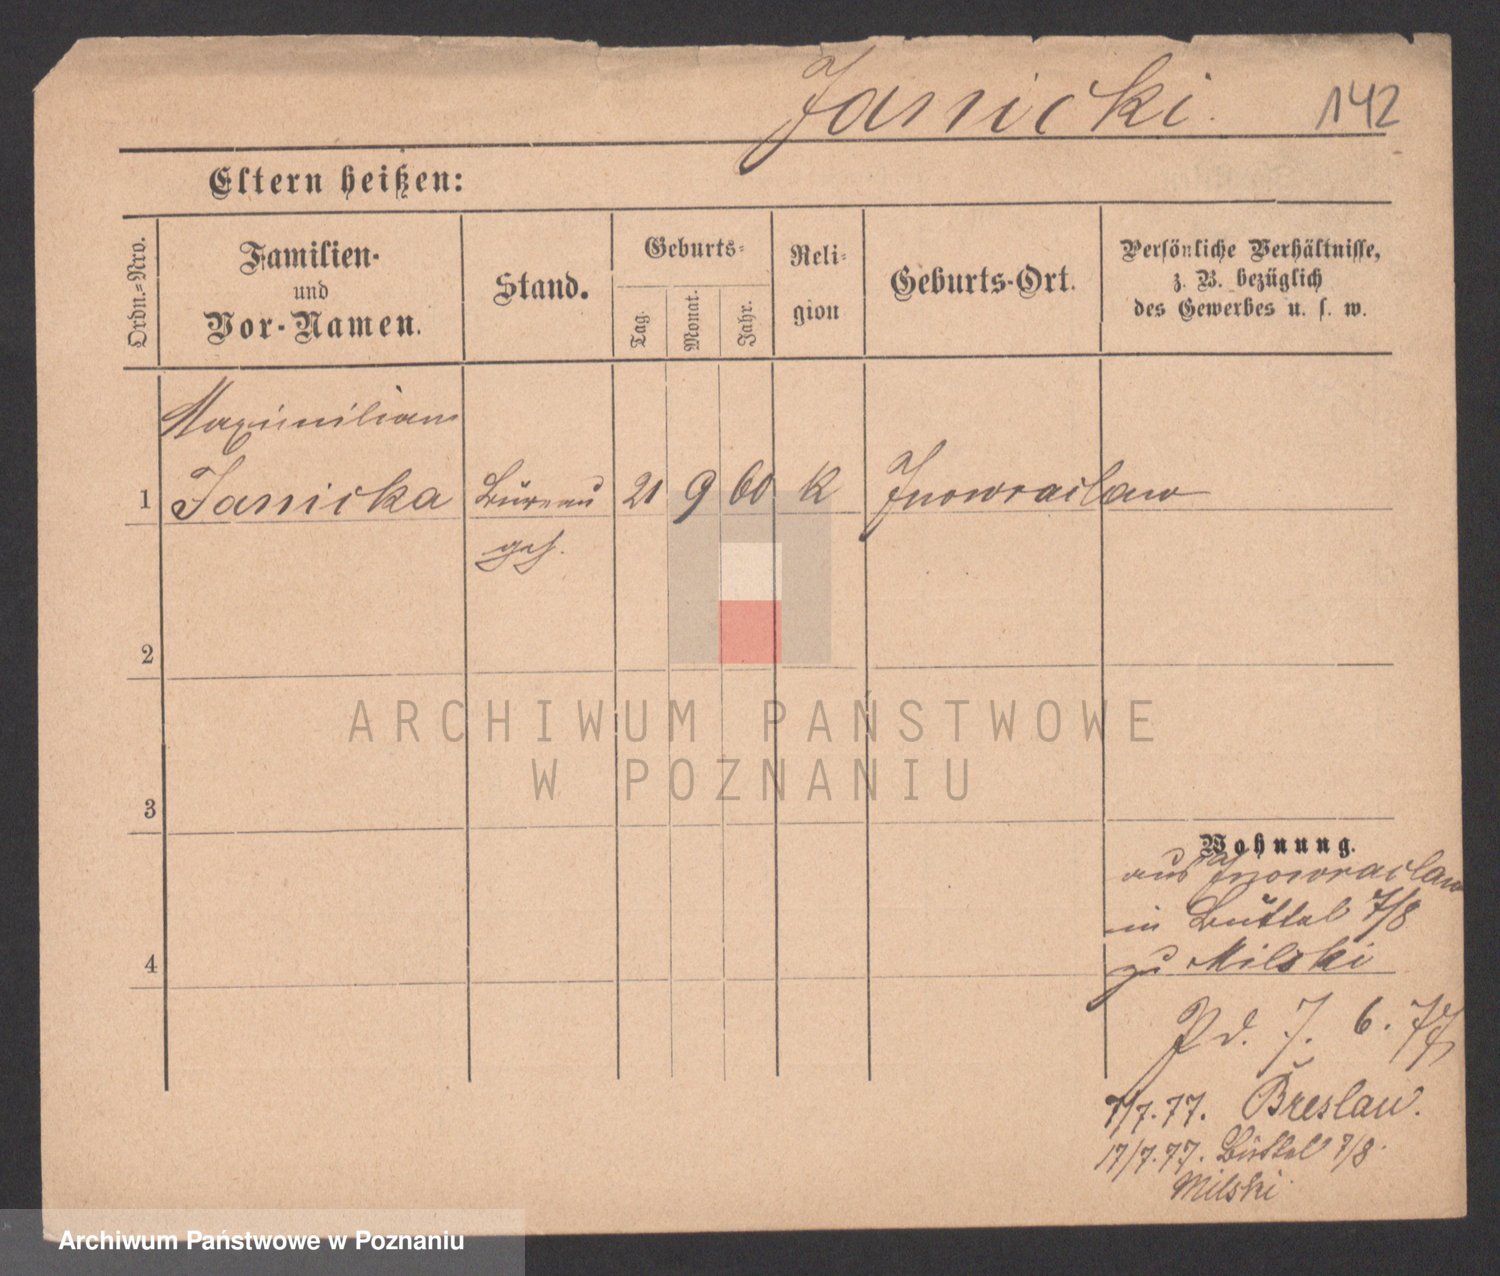 Janicki.
142
Eltern heißen:
Ordn.=Nro.
Familien-
und
Vor-Namen.
Stand.
Geburts-
Tag.
Monat.
Jahr.
Reli-
gion
Geburts-Ort.
Persönliche Verhältnisse,
z. B. bezüglich
des Gewerbes u. s. w.
Maximilian
1 Janicka Büreau 21 9 60 K Inowraclaw
geh.
2
3
4
Wohnung.
aus Inowraclaw
in Büttel 7/8
zu Milski
Pd. 7. 6. 77
7/7.77. Breslau.
17/7.77. Büttel 7/8.
Milski
ARCHIWUM PAŃSTWOWE
W POZNANIU
Archiwum Państwowe w Poznaniu